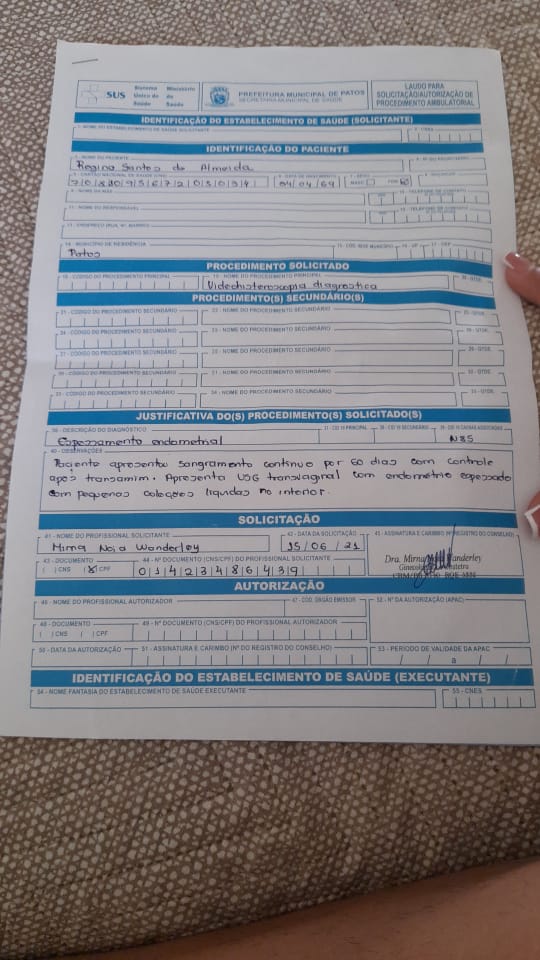 SUS
Sistema Único de Saúde
Ministério da Saúde
PREFEITURA MUNICIPAL DE PATOS
SECRETARIA MUNICIPAL DE SAÚDE
LAUDO PARA
SOLICITAÇÃO/AUTORIZAÇÃO DE
PROCEDIMENTO AMBULATORIAL
IDENTIFICAÇÃO DO ESTABELECIMENTO DE SAÚDE (SOLICITANTE)
1 - NOME DO ESTABELECIMENTO DE SAÚDE SOLICITANTE
2 - CNES
IDENTIFICAÇÃO DO PACIENTE
3 - NOME DO PACIENTE
4 - Nº DO PRONTUÁRIO
Regina Santos de Almeida
5 - CARTÃO NACIONAL DE SAÚDE (CNS)
6 - DATA DE NASCIMENTO
7 - SEXO
04/04/69
MASC
FEM
9 - NOME DA MÃE
10 - TELEFONE DE CONTATO
11 - NOME DO RESPONSÁVEL
12 - TELEFONE DE CONTATO
13 - ENDEREÇO (RUA, Nº, BAIRRO)
14 - MUNICÍPIO DE RESIDÊNCIA
15 - CÓD. IBGE MUNICÍPIO
16 - UF
17 - CEP
Patos
PROCEDIMENTO SOLICITADO
18 - CÓDIGO DO PROCEDIMENTO PRINCIPAL
19 - NOME DO PROCEDIMENTO PRINCIPAL
20 - QTDE.
Videohisteroscopia diagnostica
PROCEDIMENTO(S) SECUNDÁRIO(S)
21 - CÓDIGO DO PROCEDIMENTO SECUNDÁRIO
22 - NOME DO PROCEDIMENTO SECUNDÁRIO
23 - QTDE.
24 - CÓDIGO DO PROCEDIMENTO SECUNDÁRIO
25 - NOME DO PROCEDIMENTO SECUNDÁRIO
26 - QTDE.
27 - CÓDIGO DO PROCEDIMENTO SECUNDÁRIO
28 - NOME DO PROCEDIMENTO SECUNDÁRIO
29 - QTDE.
30 - CÓDIGO DO PROCEDIMENTO SECUNDÁRIO
31 - NOME DO PROCEDIMENTO SECUNDÁRIO
32 - QTDE.
33 - CÓDIGO DO PROCEDIMENTO SECUNDÁRIO
34 - NOME DO PROCEDIMENTO SECUNDÁRIO
35 - QTDE.
JUSTIFICATIVA DO(S) PROCEDIMENTO(S) SOLICITADO(S)
36 - DESCRIÇÃO DO DIAGNÓSTICO
37 - CID 10 PRINCIPAL
38 - CID 10 SECUNDÁRIO
39 - CID 10 CAUSAS ASSOCIADAS
Espessamento endometrial
N85
40 - OBSERVAÇÕES
Paciente apresentou sangramento contínuo por 60 dias com controle
após transamim. Apresenta USG transvaginal com endométrio espessado
com pequenas coleções líquidas no interior.
SOLICITAÇÃO
41 - NOME DO PROFISSIONAL SOLICITANTE
42 - DATA DA SOLICITAÇÃO
43 - ASSINATURA E CARIMBO (Nº REGISTRO DO CONSELHO)
Mirna Noja Wanderley
15/06/21
43 - DOCUMENTO
44 - Nº DOCUMENTO (CNS/CPF) DO PROFISSIONAL SOLICITANTE
( ) CNS (X) CPF
01423486439
Dra. Mirna Wanderley
AUTORIZAÇÃO
46 - NOME DO PROFISSIONAL AUTORIZADOR
47 - CÓD. ÓRGÃO EMISSOR
52 - Nº DA AUTORIZAÇÃO (APAC)
48 - DOCUMENTO
49 - Nº DOCUMENTO (CNS/CPF) DO PROFISSIONAL AUTORIZADOR
( ) CNS ( ) CPF
50 - DATA DA AUTORIZAÇÃO
51 - ASSINATURA E CARIMBO (Nº DO REGISTRO DO CONSELHO)
53 - PERÍODO DE VALIDADE DA APAC
/ / a / /
IDENTIFICAÇÃO DO ESTABELECIMENTO DE SAÚDE (EXECUTANTE)
54 - NOME FANTASIA DO ESTABELECIMENTO DE SAÚDE EXECUTANTE
55 - CNES